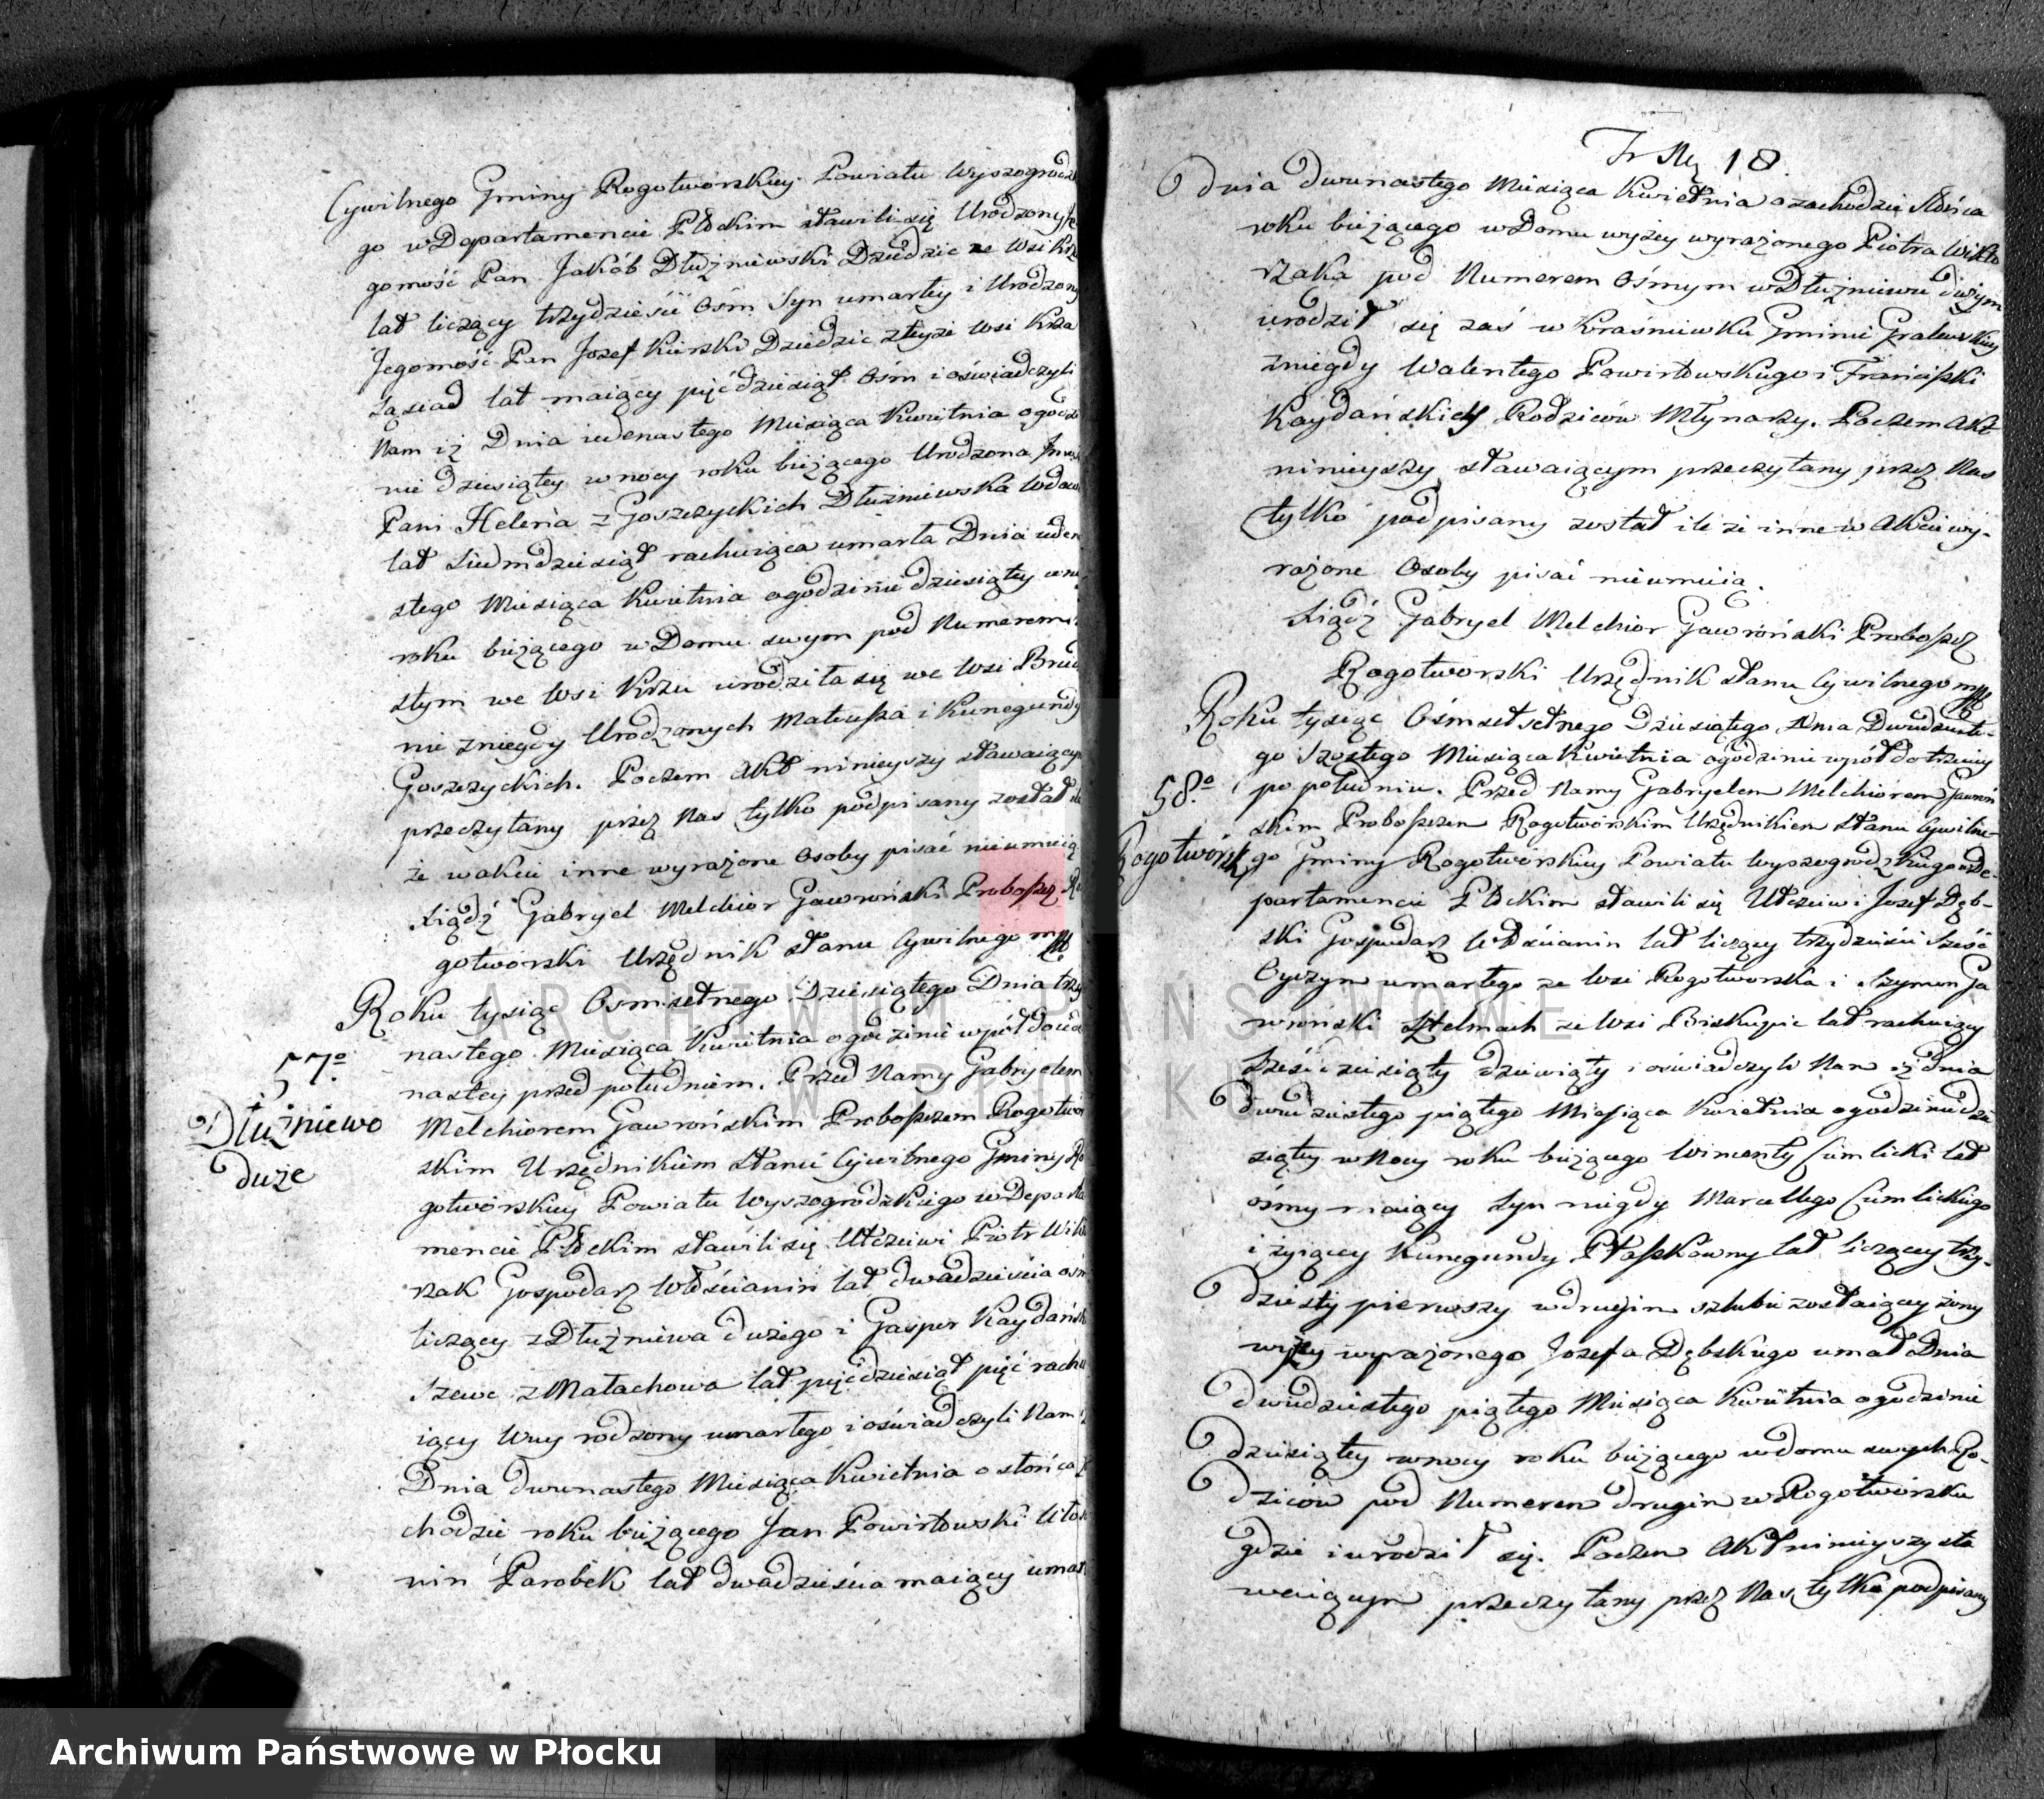 Cywilnego Gminy Rogotworskiey Powiatu Wyszogrodz
go w Departamencie Płockim stawili się Urodzony Je
gomość Pan Jakób Dłużniewski Dziedzic ze Wsi Krz
lat liczący trzydzieści Ośm Syn umarłey i Urodzony
Jegomość Pan Jozef Kierski Dziedzic zteyże Wsi Krza
Sąsiad lat maiący pięćdziesiąt Ośm i oświadczyli
Nam iż Dnia iedenastego Miesiąca Kwietnia ogodzi
nie dziesiątey w nocy roku bieżącego Urodzona
Pani Helena z Goszczyckich Dłużniewska Wdowa
lat Siedmdziesiąt rachuiąca umarła Dnia ieden
stego Miesiąca Kwietnia ogodzinie dziesiątey w no
roku bieżącego w Domu swym pod Numerem
stym we Wsi Krzu urodziła się we Wsi
nie zniegdy Urodzonych Mateusza i Kunegundy
Goszczyckich. Poczem Akt ninieyszy stawaiącym
przeczytany przez Nas tylko podpisany został ile
że w akcie inne wyrażone Osoby pisać nieumieią
Xiądź Gabryel Melchior Gawroński Proboszcz Ro
gotworski Urzędnik Stanu Cywilnego mp
Roku tysiąc Osmsetnego Dziesiątego Dnia trzy
57º nastego Miesiąca Kwietnia ogodzinie wpół do dwa
nastey przed południem. Przed Namy Gabryelem
Dłużniewo Melchiorem Gawrońskim Proboszczem Rogotwor
duże skim Urzędnikiem Stanu Cywilnego Gminy Ro
gotworskiey Powiatu Wyszogrodzkiego w Departa
mencie Płockim stawili się Utczciwi Piotr Wikto
rzak Gospodarz Włościanin lat dwadzieścia ośm
liczący z Dłużniewa dużego i Gasper Kaydański
Szewc z Małachowa lat pięćdziesiąt pięć rachu
iący Wuy rodzony umarłego i oświadczyli Nam iż
Dnia dwunastego Miesiąca Kwietnia o słońca za
chodzie roku bieżącego Jan Powirtowski Włoscia
nin Parobek lat dwadzieścia maiący umar
Str 18.
dnia dwunastego Miesiąca Kwietnia o zachodzie Słońca
roku bieżącego w Domu wyżey wyrażonego Piotra Wikto
rzaka pod Numerem Ośmym w Dłużniewie dużym
urodził się zaś w Kraśniewku Gminie Gralewskiey
zniegdy Walentego Powirtowskiego i Franciszki
Kaydańskich Rodziców Młynarzy. Poczem Akt
ninieyszy stawaiącym przeczytany przez Nas
tylko podpisany został ile że inne w Akcie wy-
rażone Osoby pisać nieumieią.
Xiądź Gabryel Melchior Gawroński Proboszcz
Rogotworski Urzędnik Stanu Cywilnego mp
Roku tysiąc Ośmsetsetnego Dziesiątego Dnia Dwudzieste-
go Szostego Miesiąca Kwietnia ogodzinie wpół do trzeciey
58º po południu. Przed Namy Gabryelem Melchiorem Gawroń
skim Proboszczem Rogotworskim Urzędnikiem Stanu Cywilne-
Rogotworsk go Gminy Rogotworskiey Powiatu Wyszogrodzkiego w De-
partamencie Płockim stawili się Utczciwi Jozef Dęb-
ski Gospodarz Włościanin lat liczący trzydzieści Sześć
Oyczym umarłego ze Wsi Rogotworska i Szymon Ga
wronski Sztelmach ze Wsi Biskupic lat rachuiący
Sześćdziesiąty dziewiąty i oświadczyli Nam iż dnia
dwudziestego piątego Miesiąca Kwietnia ogodzinie dzie
siątey w Nocy roku bieżącego Wincenty Cumlicki lat
ośmy maiący Syn niegdy Marcellego Cumlickiego
i żyiącey Kunegundy Płaszkówny lat liczącey trzy-
dziesty pierwszy w drugim szlubie zostaiącey żony
wyżey wyrażonego Jozefa Dębskiego umarł Dnia
dwudziestego piątego Miesiąca Kwietnia ogodzinie
dziesiątey w nocy roku bieżącego w domu swych Ro-
dziców pod Numerem drugim w Rogotworsku
gdzie i urodził się. Poczem Akt ninieyszy sta
waiącym przeczytany przez Nas tylko podpisany
ARCHIWUM PAŃSTWOWE
W PŁOCKU
Archiwum Państwowe w Płocku